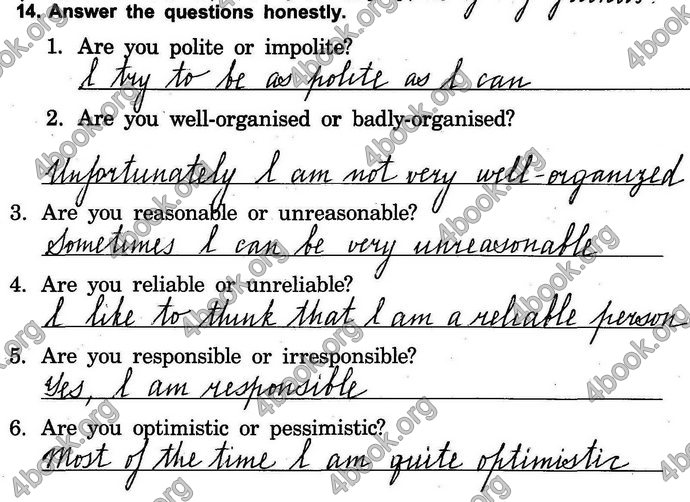 14. Answer the questions honestly.
1. Are you polite or impolite?
I try to be as polite as I can
2. Are you well-organised or badly-organised?
Unfortunately I am not very well-organized
3. Are you reasonable or unreasonable?
Sometimes I can be very unreasonable
4. Are you reliable or unreliable?
I like to think that I am a reliable person
5. Are you responsible or irresponsible?
Yes, I am responsible
6. Are you optimistic or pessimistic?
Most of the time I am quite optimistic
4book.org
4book.org
4book.org
4book.org
4book.org
4book.org
4book.org
4book.org
4book.org
4book.org
4book.org
4book.org